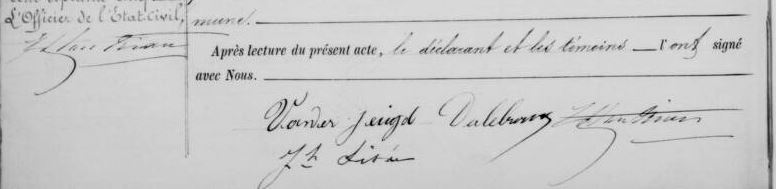 L'Officier de l'Etat-Civil,
mune.
Après lecture du présent acte, le déclarant et les témoins l'ont signé
avec Nous.
Vander Jeugd Dalebroux
Jh